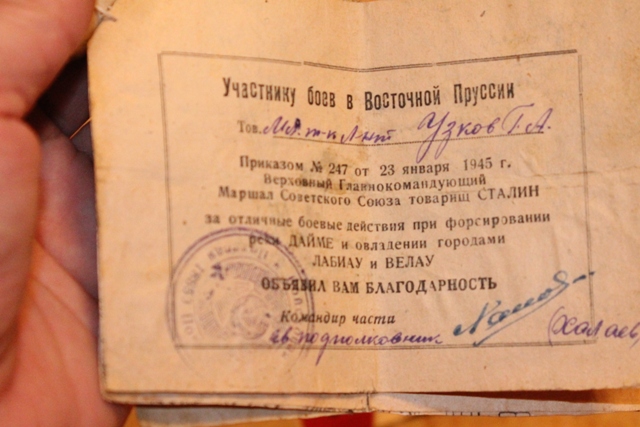 Участнику боев в Восточной Пруссии
Тов. Мл. т-к л-нт Узков Г. А.
Приказом № 247 от 23 января 1945 г.
Верховный Главнокомандующий
Маршал Советского Союза товарищ СТАЛИН
за отличные боевые действия при форсировании
реки ДАЙМЕ и овладении городами
ЛАБИАУ и ВЕЛАУ
ОБЪЯВИЛ ВАМ БЛАГОДАРНОСТЬ
Командир части
гв. подполковник
(Халаев)